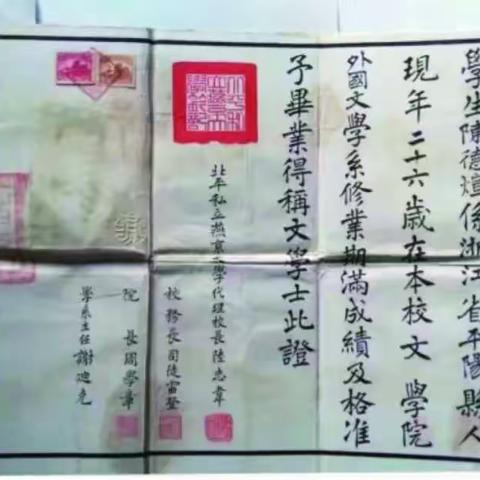 學生陳德煊係浙江省平陽縣人
現年二十六歲在本校文 學院
外國文學系修業期滿成績及格准
予畢業得稱文學士此證
北平私立燕京大學代理校長陸志韋
校務長司徒雷登
院 長周學章
學系主任謝迪克